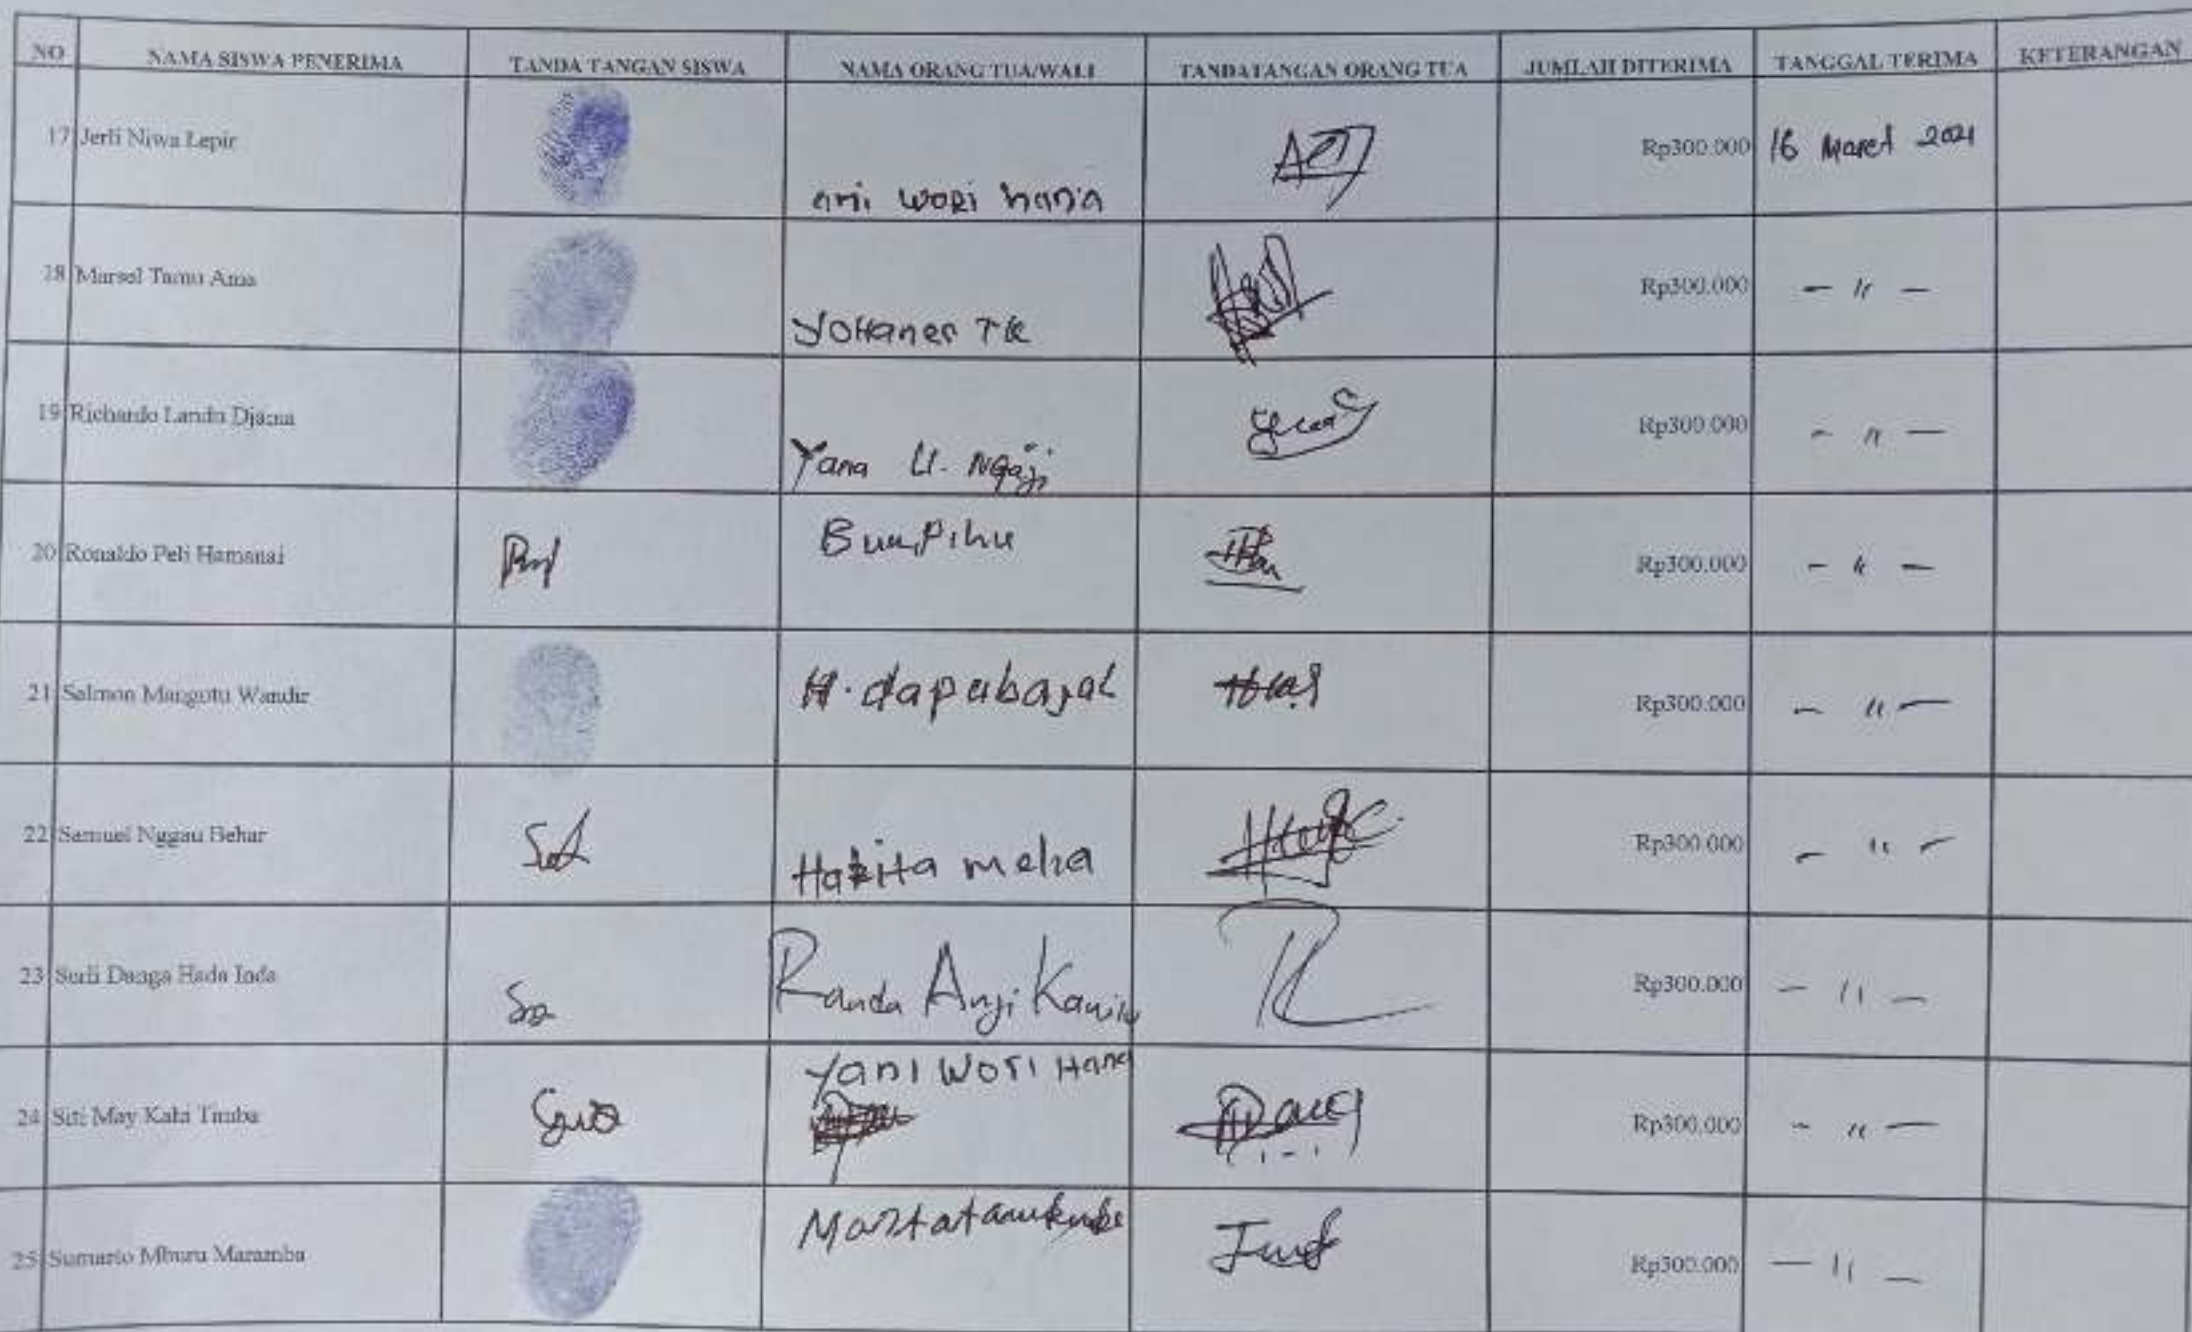 NO NAMA SISWA PENERIMA TANDA TANGAN SISWA NAMA ORANG TUA/WALI TANDATANGAN ORANG TUA JUMLAH DITERIMA TANGGAL TERIMA KETERANGAN
17 Jerli Niwa Lepir ani wori hana Rp300.000 16 Maret 2021
18 Marsel Tamu Ama Yohanes TK Rp300.000 - " -
19 Richardo Landu Djama Yana U. Ngaji Rp300.000 - " -
20 Ronaldo Peli Hamanai Rp300.000 - " -
21 Salmon Mangotu Wandir H. Rp300.000 - " -
22 Samuel Nggau Behar meha Rp300.000 - " -
23 Danga Hada Inda Randa Anji Rp300.000 - " -
24 Siti May Kahi Timba Yani Wori Hana Rp300.000 - " -
25 Sumarto Mburu Maramba Rp300.000 - " -